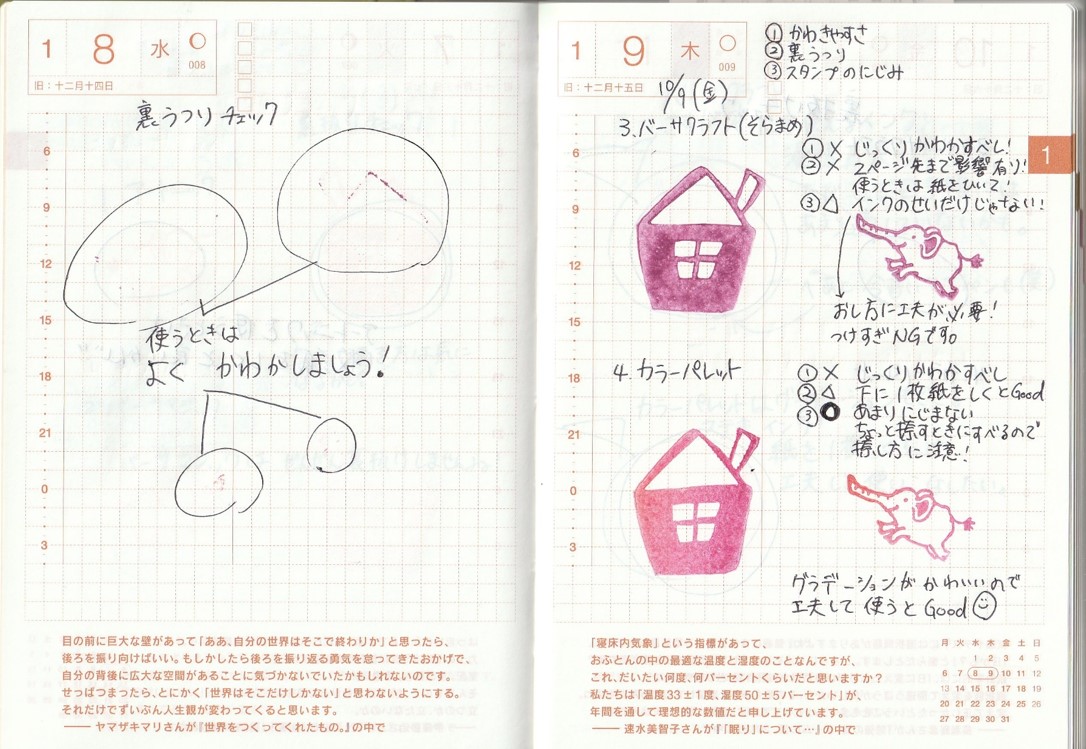 1 8 水 008
旧：十二月十四日
裏うつりチェック
6
9
12
15
18
21
0
3
使うときは
よく かわかしましょう!
目の前に巨大な壁があって「ああ、自分の世界はそこで終わりか」と思ったら、
後ろを振り向けばいい。もしかしたら後ろを振り返る勇気を怠ってきたおかげで、
自分の背後に広大な空間があることに気づかないでいたかもしれないのです。
せっぱつまったら、とにかく「世界はそこだけしかない」と思わないようにする。
それだけでずいぶん人生観が変わってくると思います。
—— ヤマザキマリさんが『世界をつくってくれたもの。』の中で
1 9 木 009
旧：十二月十五日
① かわきやすさ
② 裏うつり
③ スタンプのにじみ
10/9(金)
3. バーサクラフト(そらまめ)
① × じっくりかわかすべし!
② × 2ページ先まで影響有り!
使うときは紙をひいて!
③ △ インクのせいだけじゃない!
おし方に工夫が必要!
つけすぎNGです。
1
6
9
12
15
18
21
0
3
4. カラーパレット
① × じっくりかわかすべし
② △ 下に1枚紙をしくとGood
③ ○ あまりにじまない
ちょっと捺すときにすべるので
捺し方に注意!
グラデーションがかわいいので
工夫して使うとGood
「寝床内気象」という指標があって、
おふとんの中の最適な温度と湿度のことなんですが、
これ、だいたい何度、何パーセントくらいだと思いますか?
私たちは「温度33±1度、湿度50±5パーセント」が、
年間を通して理想的な数値だと申し上げています。
—— 速水美智子さんが『「眠り」について…』の中で
月 火 水 木 金 土 日
1 2 3 4 5
6 7 8 9 10 11 12
13 14 15 16 17 18 19
20 21 22 23 24 25 26
27 28 29 30 31